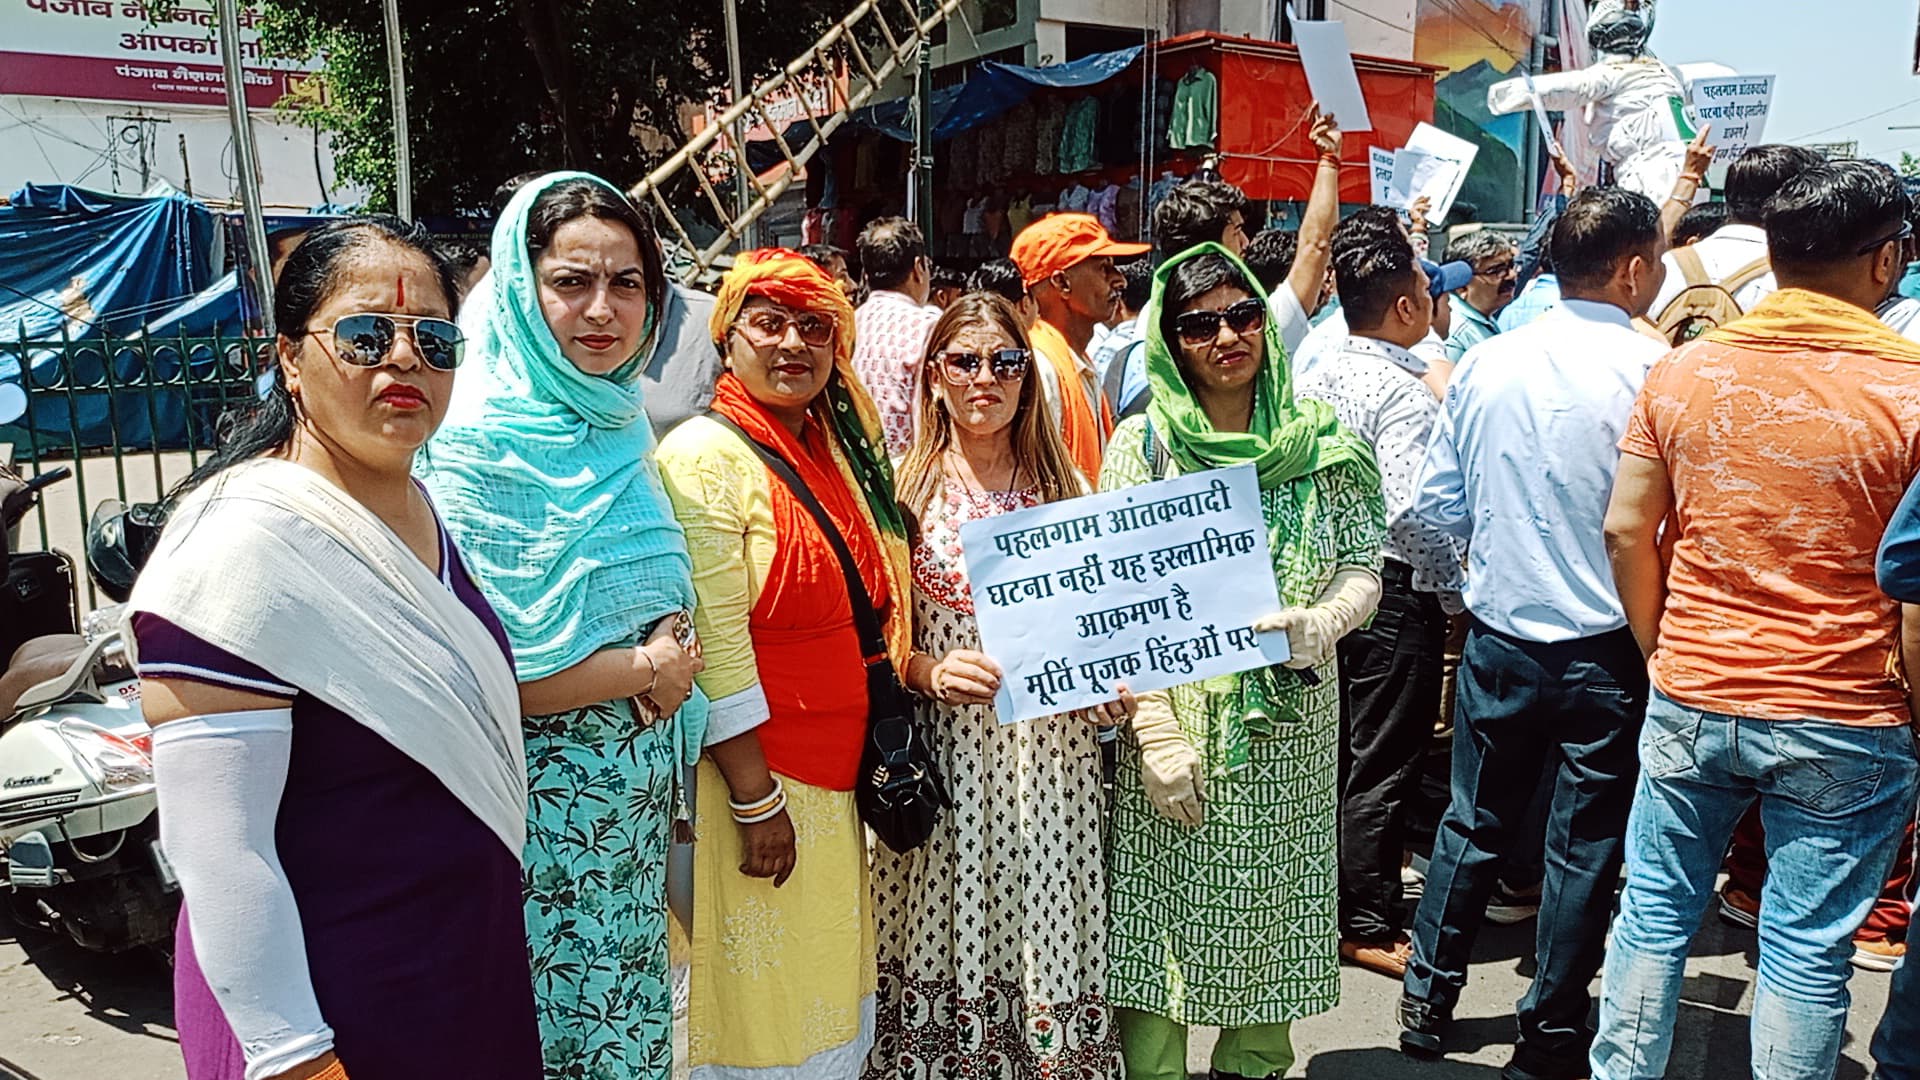 पंजाब नैशनल बैंक
आपका
पंजाब नैशनल बैंक
(भारत सरकार का
पहलगाम आंतकवादी
घटना नहीं यह इस्लामिक
आक्रमण है
पहलगाम आंतकवादी
घटना नहीं यह इस्लामिक
आक्रमण है
मूर्ति पूजक हिंदुओं पर
LIMITED EDITION
DS